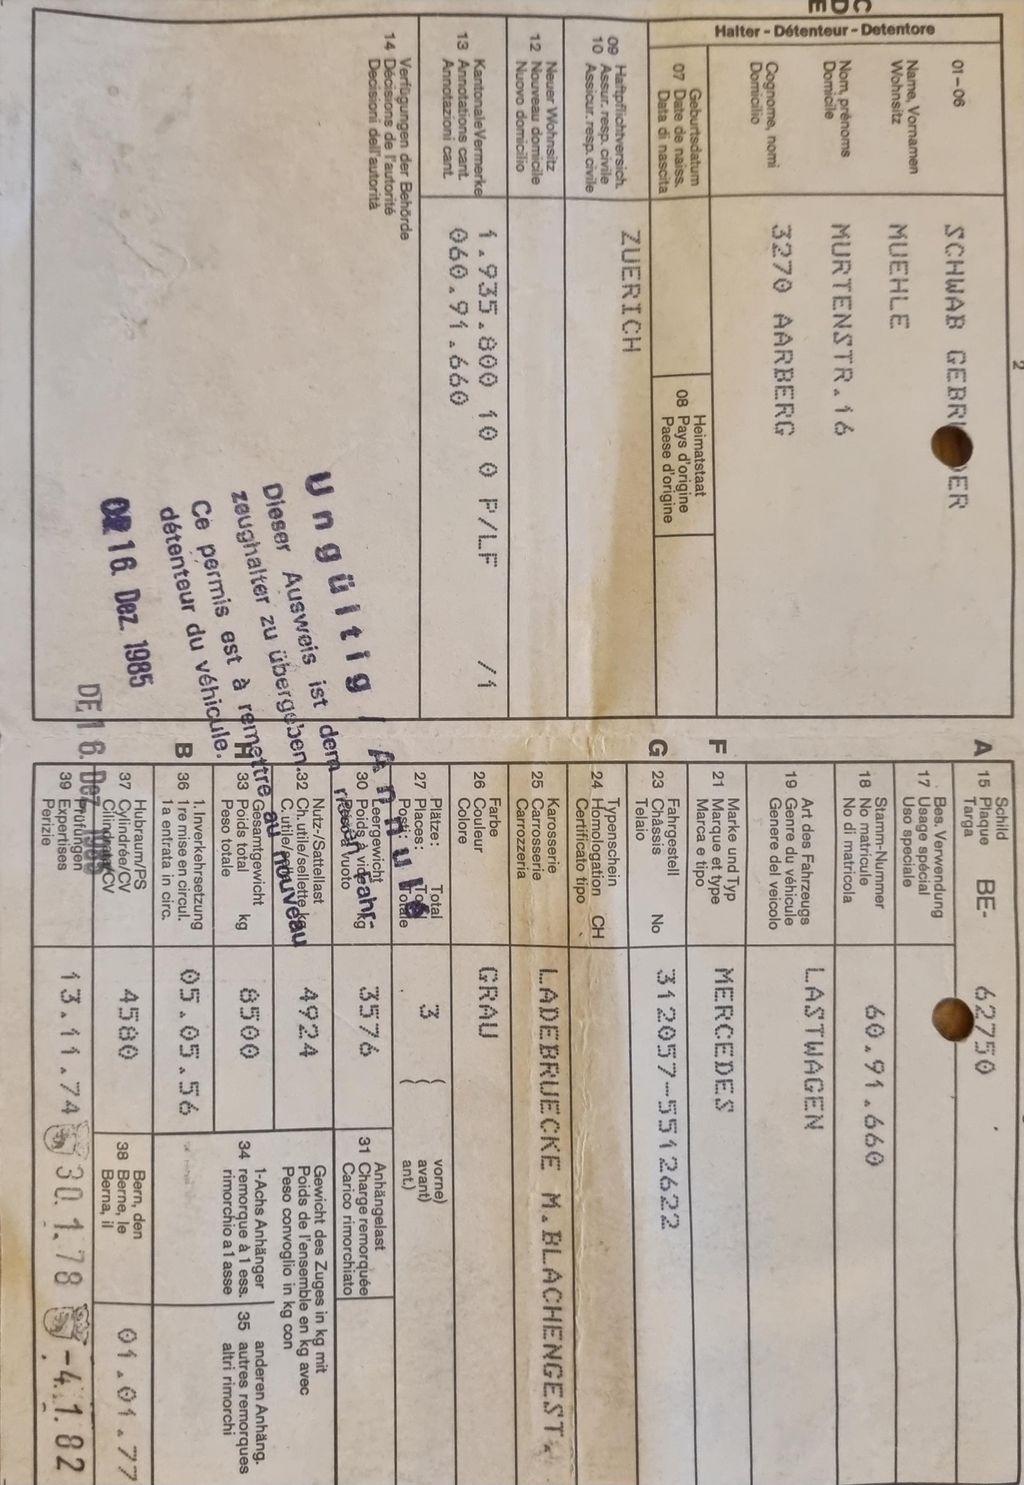 2
C
D
E
Halter - Détenteur - Detentore
01-06
Name, Vornamen
Wohnsitz
Nom, prénoms
Domicile
Cognome, nomi
Domicilio
SCHWAB GEBR DER
MUEHLE
MURTENSTR.16
3270 AARBERG
Geburtsdatum
07 Date de naiss.
Data di nascita
Heimatstaat
08 Pays d'origine
Paese d'origine
09 Haftpflichtversich.
Assur. resp. civile
10 Assicur. resp. civile
ZUERICH
Neuer Wohnsitz
12 Nouveau domicile
Nuovo domicilio
Kantonale Vermerke
13 Annotations cant.
Annotazioni cant.
1.935.800 10 0 P/LF /1
060.91.660
Verfügungen der Behörde
14 Décisions de l'autorité
Decisioni dell'autorità
Ungültig / Annulé
Dieser Ausweis ist dem Fahr-
zeughalter zu übergeben.
Ce permis est à remettre au nouveau
détenteur du véhicule.
16. Dez. 1985
DE 18. Dez. 1985
A
Schild
15 Plaque
Targa
BE- 62750
Bes. Verwendung
17 Usage spécial
Uso speciale
Stamm-Nummer
18 No matricule
No di matricola
60.91.660
Art des Fahrzeugs
19 Genre du véhicule
Genere del veicolo
LASTWAGEN
F
Marke und Typ
21 Marque et type
Marca e tipo
MERCEDES
G
Fahrgestell
23 Châssis No
Telaio
312057-5512622
Typenschein
24 Homologation CH
Certificato tipo
Karosserie
25 Carrosserie
Carrozzeria
LADEBRUECKE M.BLACHENGEST.
Farbe
26 Couleur
Colore
GRAU
Plätze: Total
27 Places: Total
Posti: Totale
3
( vorne)
( avant)
ant.)
Leergewicht
30 Poids vide kg
Peso a vuoto
3576
Anhängelast
31 Charge remorquée
Carico rimorchiato
Nutz-/Sattellast
32 Ch. utile/sellette kg
C. utile/
4924
Gewicht des Zuges in kg mit
Poids de l'ensemble en kg avec
Peso convoglio in kg con
H
Gesamtgewicht
33 Poids total kg
Peso totale
8500
1-Achs Anhänger
34 remorque à 1 ess.
rimorchio a 1 asse
anderen Anhäng.
35 autres remorques
altri rimorchi
B
1. Inverkehrsetzung
36 1re mise en circul.
1a entrata in circ.
05.05.56
Hubraum/PS
37 Cylindrée/CV
Cilindrata/CV
4580
Bern, den
38 Berne, le
Berna, il
01.01.77
Prüfungen
39 Expertises
Perizie
13.11.74 30.1.78 -4.1.82